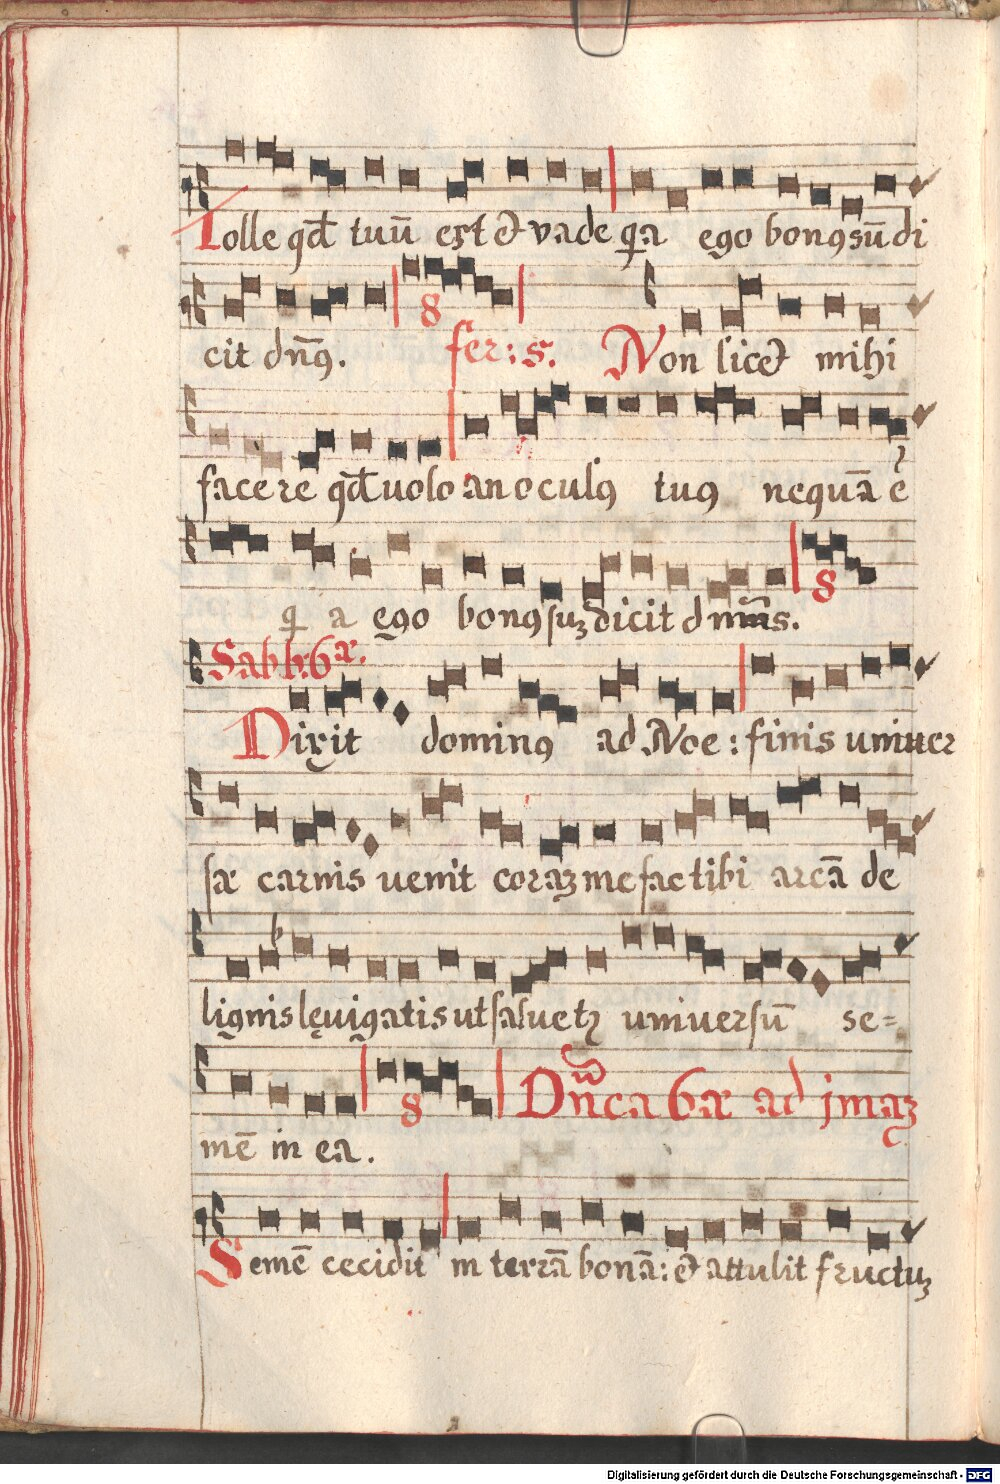 Tolle qd̄ tuū est et vade qia ego bonꝯ sū di
cit dn̄ꝯ. 8 fer: 5. Non licet mihi
facere qd̄ uolo an oculꝯ tuꝯ nequā ē
qi a ego bonꝯ suꝫ dicit dominus.
Sabb: 6æ.
Dixit dominꝯ ad Noe: finis uniuer
sæ carnis uenit coraꝫ me fac tibi arcā de
lignis lęuigatis ut saluetꝛ uniuersū se=
mē in ea. 8 Dn̄ica 6æ ad jmaꝫ
Semē cecidit in terrā bonā: et attulit fructuꝫ
Digitalisierung gefördert durch die Deutsche Forschungsgemeinschaft - DFG